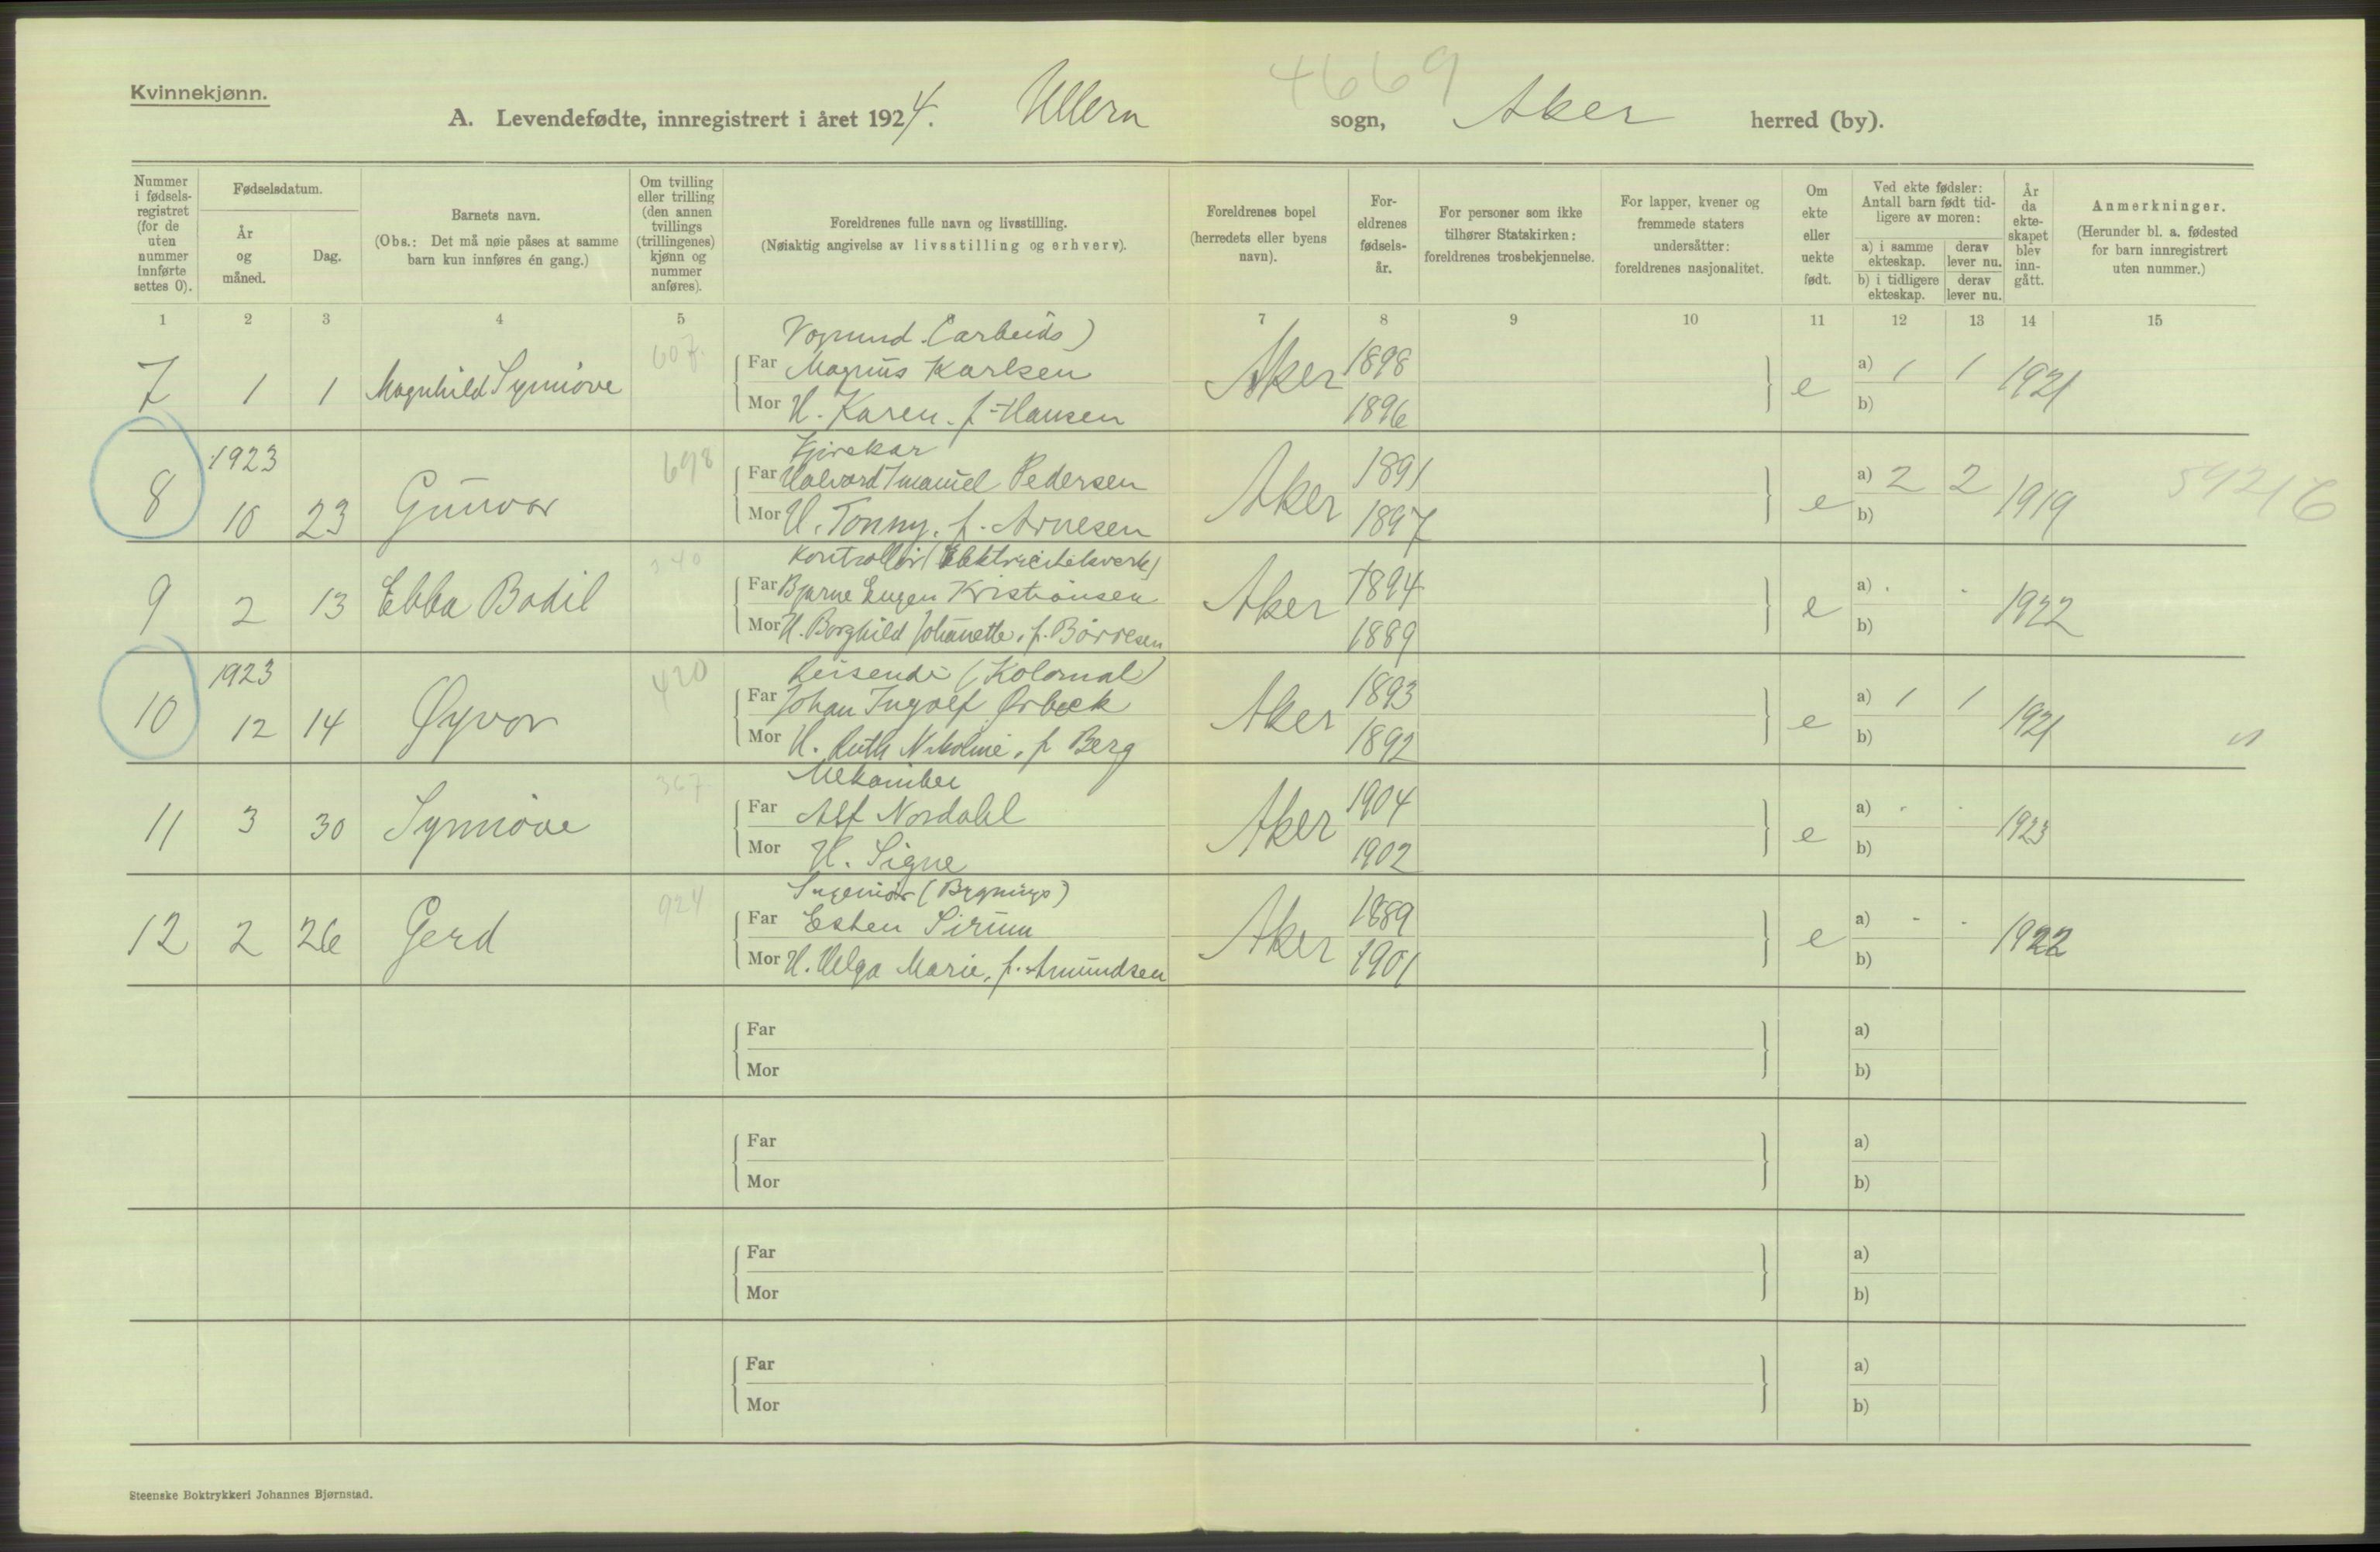 Kvinnekjønn.
4669
A. Levendefødte, innregistrert i året 1924. Ullern sogn, Aker herred (by).
Nummer i fødsels-registret (for de uten nummer innførte settes 0).
Fødselsdatum.
År og måned.
Dag.
Barnets navn.
(Obs.: Det må nøie påses at samme barn kun innføres én gang.)
Om tvilling eller trilling (den annen tvillings (trillingenes) kjønn og nummer anføres).
Foreldrenes fulle navn og livsstilling.
(Nøiaktig angivelse av livsstilling og erhverv).
Foreldrenes bopel (herredets eller byens navn).
For-eldrenes fødsels-år.
For personer som ikke tilhører Statskirken: foreldrenes trosbekjennelse.
For lapper, kvener og fremmede staters undersåtter: foreldrenes nasjonalitet.
Om ekte eller uekte født.
Ved ekte fødsler: Antall barn født tid-ligere av moren:
a) i samme ekteskap.
derav lever nu.
b) i tidligere ekteskap.
derav lever nu.
År da ekte-skapet blev inn-gått.
Anmerkninger.
(Herunder bl. a. fødested for barn innregistrert uten nummer.)
1 2 3 4 5 6 7 8 9 10 11 12 13 14 15
Vognmd. (arbeids)
607.
7 1 1 Magnhild Synnøve Far Magnus Karlsen Aker 1898 e a) 1 1 1921
Mor H. Karen. f. Hansen 1896 b)
1923 698 Kjørekar
8 10 23 Gunvor Far Halvard Imanuel Pedersen Aker 1891 e a) 2 2 1919 59216
Mor H. Tonny. f. Arnesen 1897 b)
340 Kontrollør (Elektricitetsverk)
9 2 13 Ebba Bodil Far Bjarne Eugen Kristiansen Aker 1894 e a) . . 1922
Mor H. Borghild Johanette, f. Børresen 1889 b)
1923 420 Reisende (Kolonial)
10 12 14 Øyvor Far Johan Ingolf Ørbeck Aker 1893 e a) 1 1 1921
Mor H. Ruth Nikoline, f. Berg 1892 b)
367. Mekaniker
11 3 30 Synnøve Far Alf Nordahl Aker 1904 e a) . . 1923
Mor H. Signe 1902 b)
924 Ingeniør (Bygnings)
12 2 26 Gerd Far Esten Sirum Aker 1889 e a) - - 1922
Mor H. Helga Marie, f. Amundsen 1901 b)
Far a)
Mor b)
Far a)
Mor b)
Far a)
Mor b)
Far a)
Mor b)
Steenske Boktrykkeri Johannes Bjørnstad.